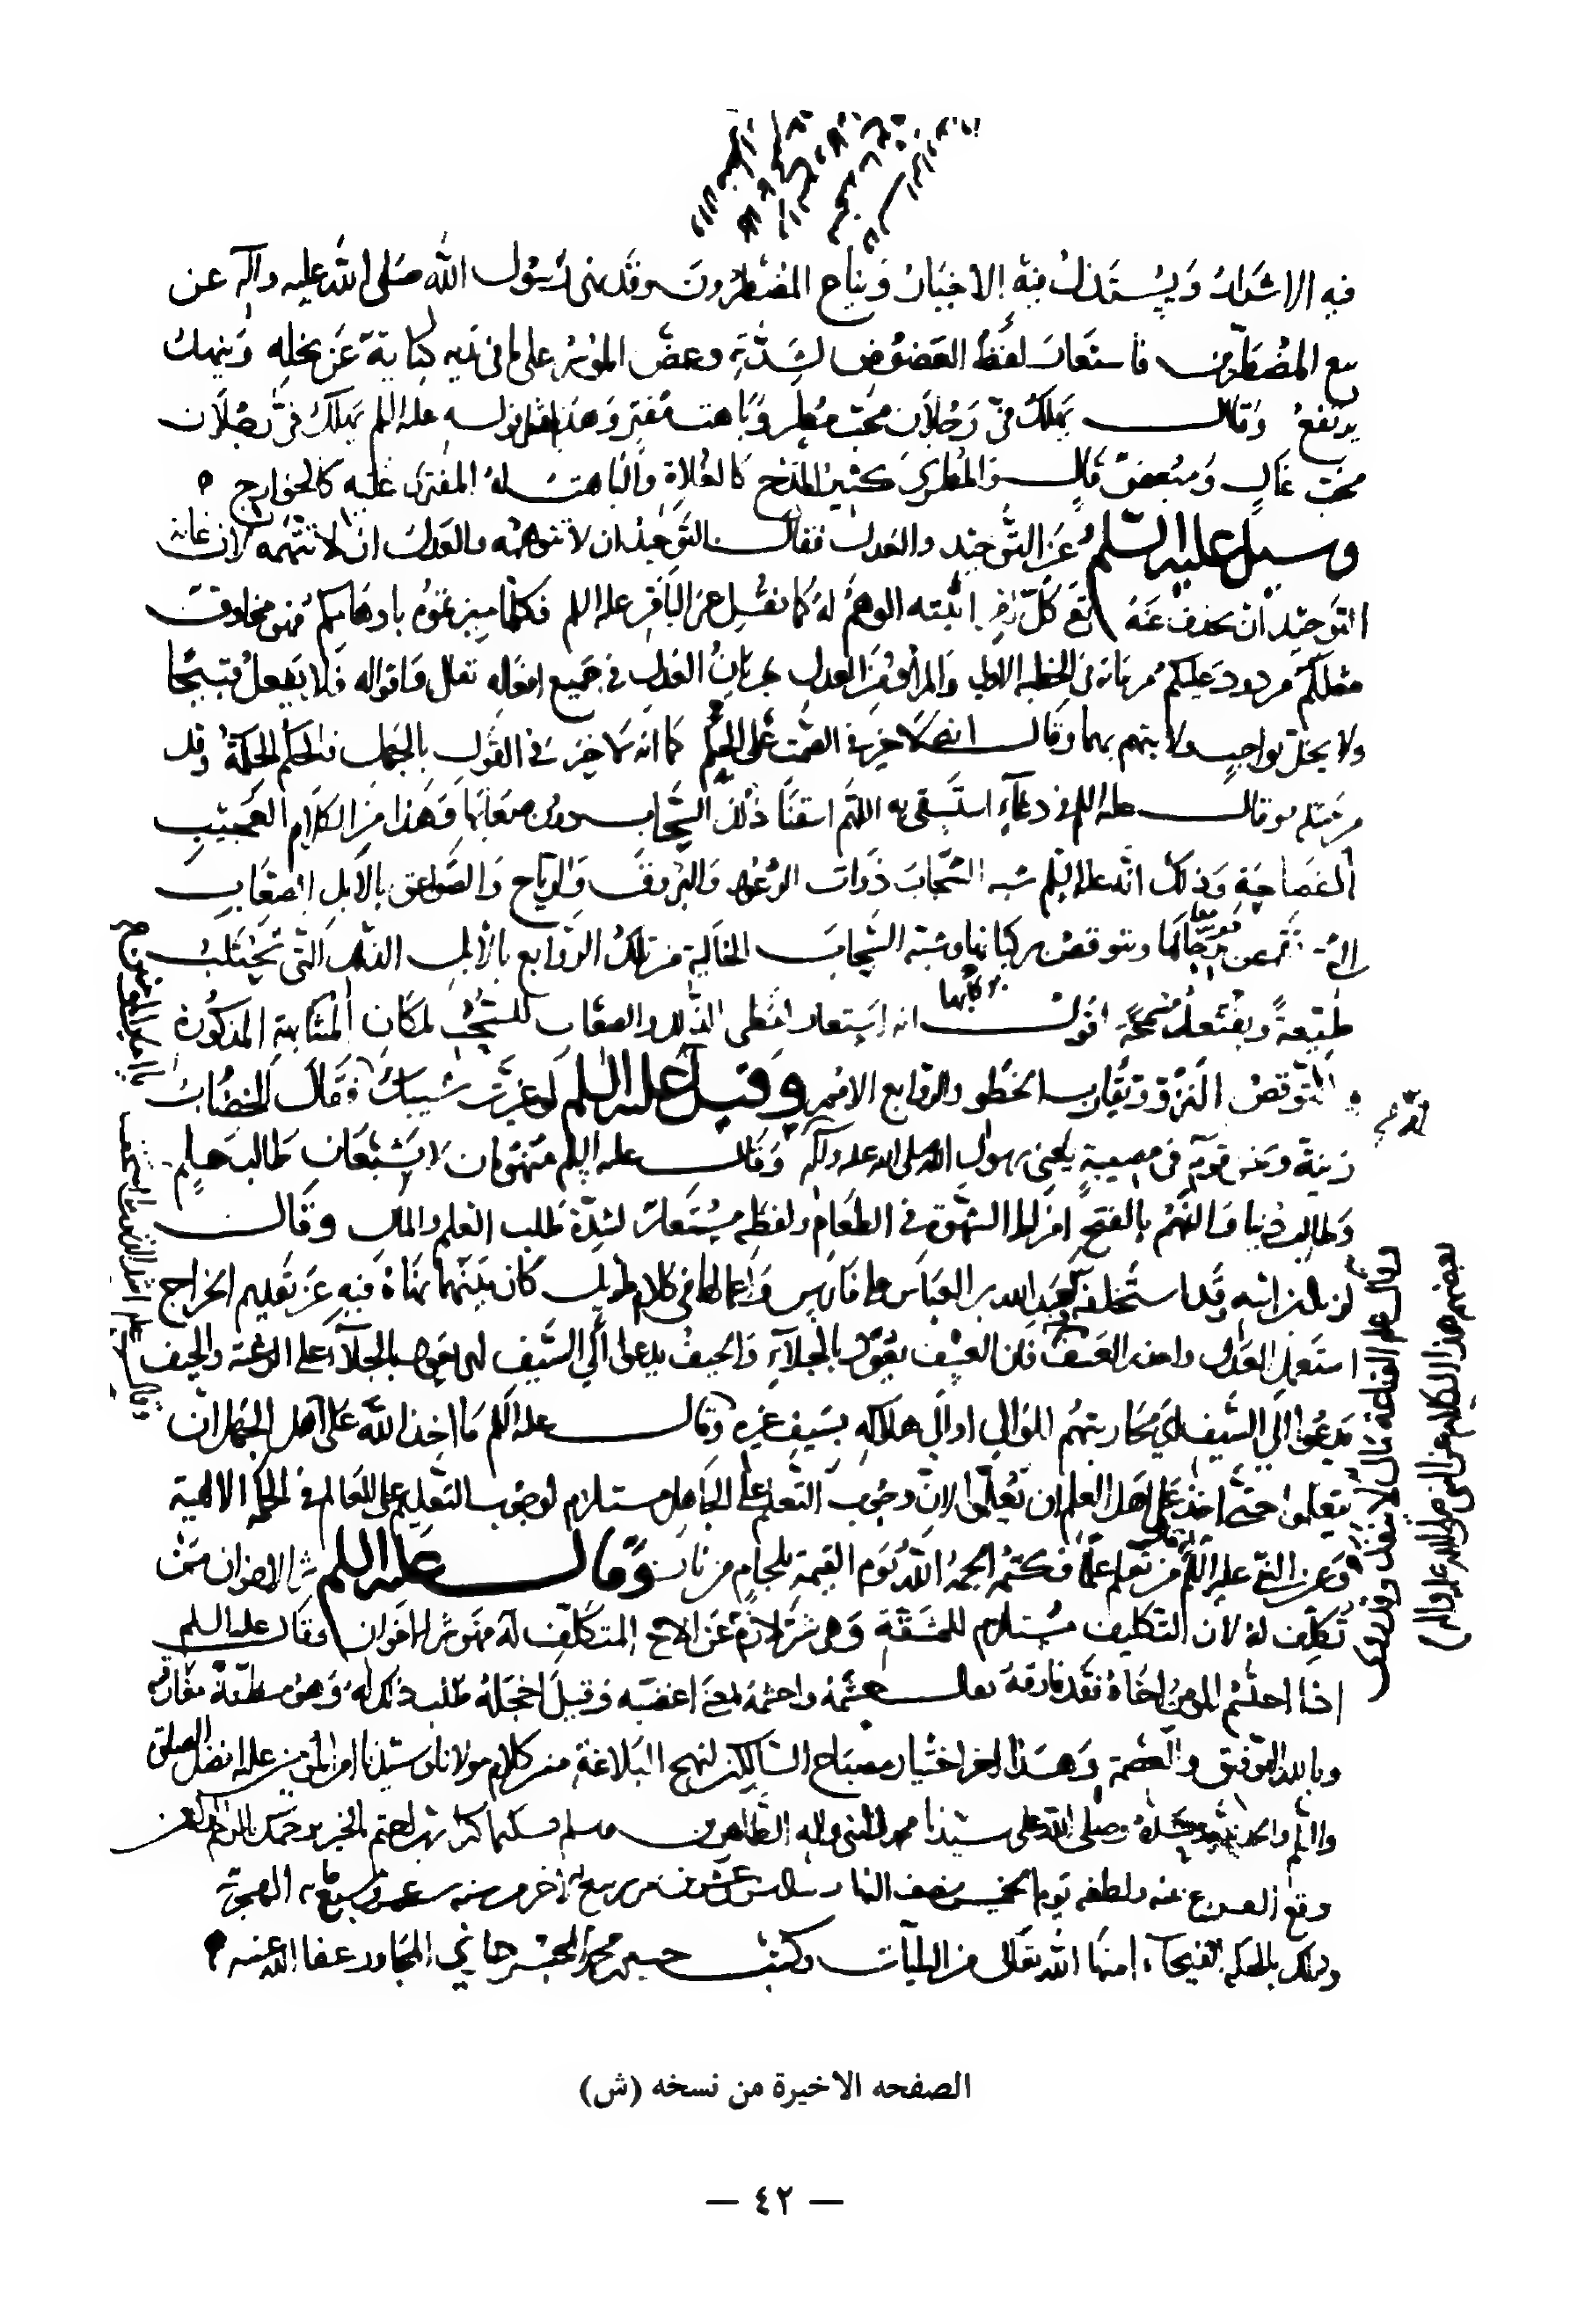 فيه الاشرار وَيُستذل فيه الاخيار وَيبايع المضطرون وقد نهى رسول الله صلى الله عليه وآله عن
بيع المضطرين فاستعار لفظ العضوض لشدته وعض الموسر على ما في يديه كناية عن بخله وَينهد
يرتفع وقال يهلك فيّ رجلان محب مطر وباهت مفتر وهذا مثل قوله عليه السلم يهلك فيّ رجلان
محب غال ومبغض قال والمطرى كثير المدح كالغلاة والباهت له المفترى عليه كالخوارج
وسيل عليه السلم عن التوحيد والعدل فقال التوحيد ان لا تتوهمه والعدل ان لا تتهمه لان غاية
التوحيد ان يحذف عنه كل اثبته الوهم له كما نقل عن الباقر عليه السلم فكلما ميزتموه باوهامكم فهو مخلوق
مثلكم مردود عليكم مر بيانه في الخطبة الاولى والمراد من العدل جريان العدل في جميع افعاله تعالى واقواله فلا يفعل قبيحا
ولا يخل بواجب ولا يتهم بهما وقال لا خير في الصمت على الحكم كما انه لا خير في القول بالجهل فالحكم الحكمة وقد
مر مثله وقال عليه السلم في دعاء استسقى به اللهم اسقنا ذلل السحاب دون صعابها وهذا من الكلام العجيب
الفصاحة وذلك انه عليه السلم شبه السحاب ذوات الرعود والبروق والرياح والصواعق بالابل الصعاب
التي تقمص برحالها وتتوقص بركبانها وشبه السحاب الخالية من تلك الروابع بالابل الذلل التي تحتلب
طيعة وتقتعد مسمحة اقول انه استعار لفظى الذلل والصعاب للسحب لمكان المشابهة المذكورة
التوقص النزو وتقارب الخطو والروابع الامور وقيل عليه السلم لو غيرت شيبك فقال الخضاب
زينة ونحن قوم في مصيبة يعني برسول الله صلى الله عليه وآله وقال عليه السلم منهومان لا يشبعان طالب علم
وطالب دنيا والنهم بالفتح افراط الشهوة في الطعام ولفظه مستعار لشدة طلب العلم والمال وقال
لزياد بن ابيه وقد استخلفه لعبد الله بن العباس على فارس واعمالها في كلام طويل كان بينهما نهاه فيه عن تقديم الخراج
استعمل العدل واحذر العسف فان العسف يعود بالجلاء والحيف يدعو الى السيف اي يعود بالجلاء على الرعية والحيف
يدعوا الى السيف اي محاربتهم الوالي او الى هلاكه بسيف غيره وقال عليه السلم ما اخذ الله على اهل الجهل ان
يتعلموا حتى اخذ على اهل العلم ان يعلموا لان وجوب التعلم على الجاهل مستلزم لوجوب التعليم على العالم في الحكمة الالهية
وعن النبي عليه السلم من تعلم علما فكتمه الجمه الله يوم القيمة بلجام من نار وقال عليه السلم شر الاخوان من
تكلف له لان التكليف مستلزم للمشقة وهي شر لازم عن الاخ المتكلف له فهو شر الاخوان وقال عليه السلم
اذا احتشم المومن اخاه فقد فارقه يقال حشمه واحشمه بمعنى اغضبه وقيل اخجله طلب ذلك له وهو مظنة مفارقته
وبالله التوفيق والعصمة وهذا اخر اختيار مصباح السالكين لنهج البلاغة من كلام مولانا وسيدنا امير المؤمنين عليه افضل الصلوة
والسلم والحمد لله وحده وصلى الله على سيدنا محمد النبي واله الطاهرين وسلم تسليما كثيرا
وقع الفراغ عنه ولطفه يوم الخميس نصف النهار سادس عشرين من ربيع الاخر من سنة الهجرية
وذلك امنها الله تعالى من البليات وكتب حسين محمد المجاور عفا الله عنه
وقال عليه السلم اشد الذنوب ما استخف
وقال عليه السلم القناعة مال لا ينفد وقد روى
بعضهم هذا الكلام عن النبي صلى الله عليه واله
الصفحه الاخيرة من نسخه (ش)
— ٤٢ —